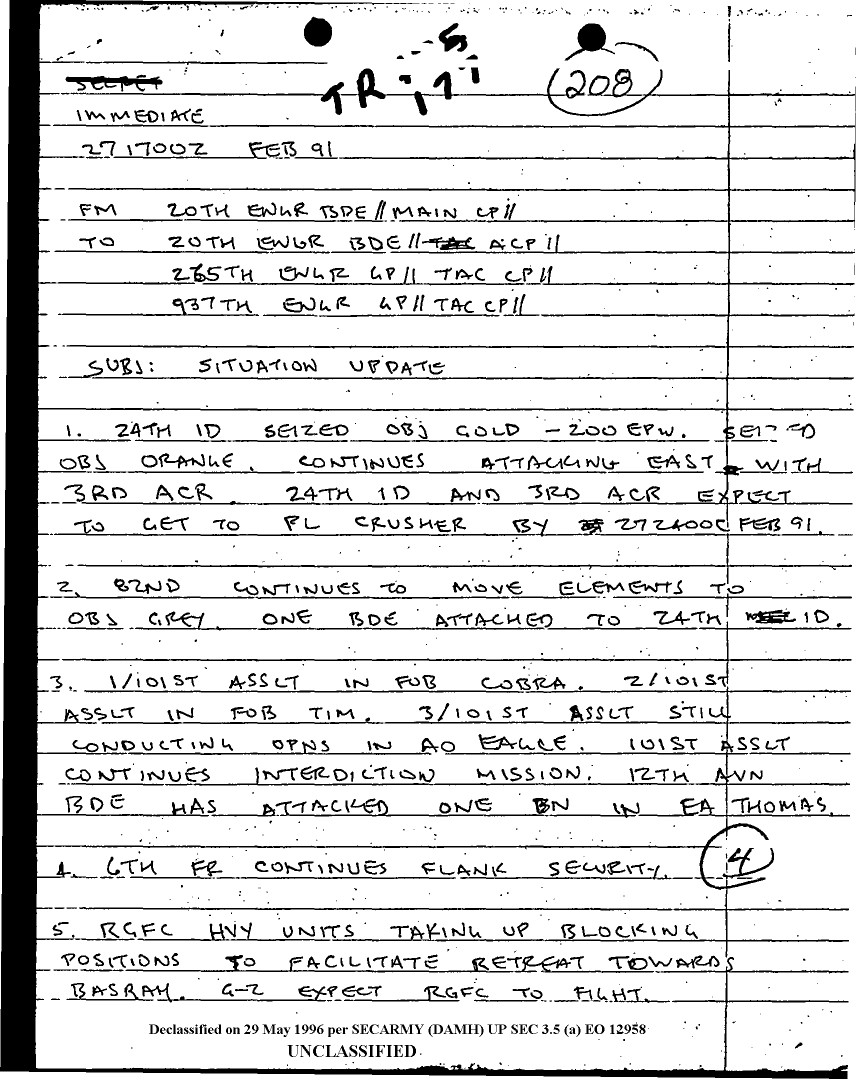 SECRET
TR
208
IMMEDIATE
271700Z FEB 91
FM 20TH ENGR BDE // MAIN CP //
TO 20TH ENGR BDE // TAC ACP //
265TH ENGR GP // TAC CP //
937TH ENGR GP // TAC CP //
SUBJ: SITUATION UPDATE
1. 24TH ID SEIZED OBJ GOLD - 200 EPW. SEIZED
OBJ ORANGE. CONTINUES ATTACKING EAST WITH
3RD ACR. 24TH ID AND 3RD ACR EXPECT
TO GET TO PL CRUSHER BY 272400C FEB 91.
2. 82ND CONTINUES TO MOVE ELEMENTS TO
OBJ GREY. ONE BDE ATTACHED TO 24TH ID.
3. 1/101ST ASSLT IN FOB COBRA. 2/101ST
ASSLT IN FOB TIM. 3/101ST ASSLT STILL
CONDUCTING OPNS IN AO EAGLE. 101ST ASSLT
CONTINUES INTERDICTION MISSION. 12TH AVN
BDE HAS ATTACKED ONE BN IN EA THOMAS.
4. 6TH FR CONTINUES FLANK SECURITY.
4
5. RGFC HVY UNITS TAKING UP BLOCKING
POSITIONS TO FACILITATE RETREAT TOWARDS
BASRAH. G-2 EXPECT RGFC TO FIGHT.
Declassified on 29 May 1996 per SECARMY (DAMH) UP SEC 3.5 (a) EO 12958
UNCLASSIFIED